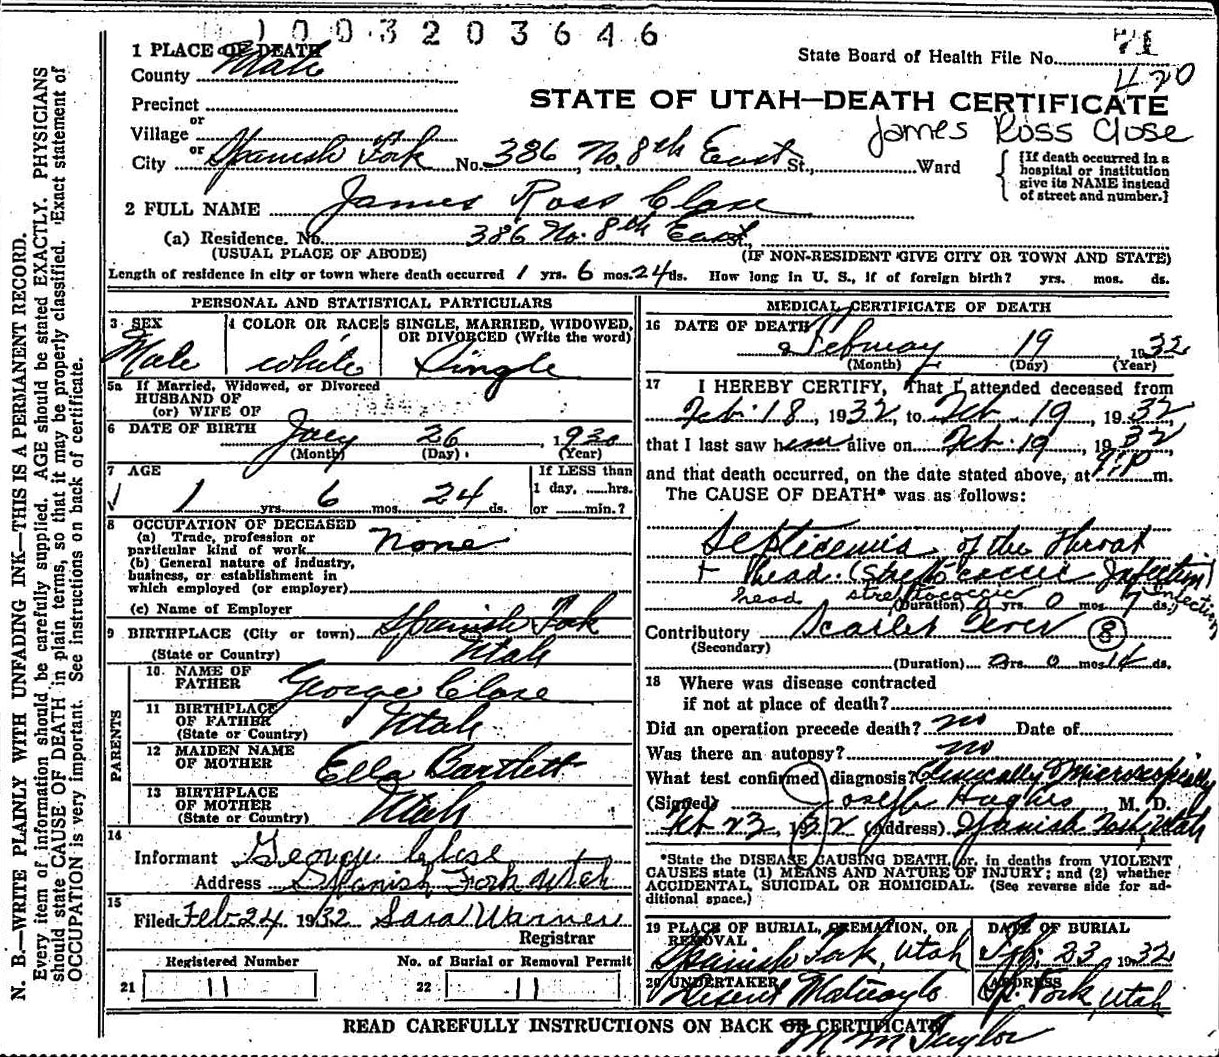 1003203646
1 PLACE OF DEATH
County Utah
State Board of Health File No. 71
420
Precinct
or
Village
STATE OF UTAH—DEATH CERTIFICATE
James Ross Close
or
City Spanish Fork No. 386 No. 8th East St., Ward
{If death occurred in a
hospital or institution
give its NAME instead
of street and number.}
2 FULL NAME James Ross Close
(a) Residence. No. 386 No. 8th East St.,
(USUAL PLACE OF ABODE) (IF NON-RESIDENT GIVE CITY OR TOWN AND STATE)
Length of residence in city or town where death occurred 1 yrs. 6 mos. 24 ds. How long in U. S., if of foreign birth? yrs. mos. ds.
PERSONAL AND STATISTICAL PARTICULARS
3 SEX 4 COLOR OR RACE 5 SINGLE, MARRIED, WIDOWED,
OR DIVORCED (Write the word)
Male white Single
5a If Married, Widowed, or Divorced
HUSBAND OF
(or) WIFE OF
6 DATE OF BIRTH July 26, 1930
(Month) (Day) (Year)
7 AGE If LESS than
1 yrs. 6 mos. 24 ds. 1 day, ......hrs.
or ......min.?
8 OCCUPATION OF DECEASED
(a) Trade, profession or
particular kind of work none
(b) General nature of industry,
business, or establishment in
which employed (or employer)
(c) Name of Employer
9 BIRTHPLACE (City or town) Spanish Fork
(State or Country) Utah
PARENTS
10 NAME OF
FATHER George Close
11 BIRTHPLACE
OF FATHER Utah
(State or Country)
12 MAIDEN NAME
OF MOTHER Ella Bartlett
13 BIRTHPLACE
OF MOTHER Utah
(State or Country)
14
Informant George Close
Address Spanish Fork Utah
15
Filed Feb 24 1932 Sara Warner
Registrar
Registered Number No. of Burial or Removal Permit
21 11 22 11
MEDICAL CERTIFICATE OF DEATH
16 DATE OF DEATH
February 19, 1932
(Month) (Day) (Year)
17 I HEREBY CERTIFY, That I attended deceased from
Feb. 18, 1932, to Feb. 19, 1932
that I last saw him alive on Feb. 19, 1932
and that death occurred, on the date stated above, at 9 P m.
The CAUSE OF DEATH* was as follows:
Septicemia of the throat
+ head. (Streptococcic Infection)
head streptococcic infection
(Duration) 0 yrs. 0 mos. 7 ds.
Contributory Scarlet Fever 8
(Secondary)
(Duration) 0 yrs. 0 mos. 14 ds.
18 Where was disease contracted
if not at place of death?
Did an operation precede death? no Date of
Was there an autopsy? no
What test confirmed diagnosis? Clinically Microscopically
(Signed) Joseph Hughes, M. D.
Feb 23, 1932 (Address) Spanish Fork, Utah
*State the DISEASE CAUSING DEATH, or, in deaths from VIOLENT
CAUSES state (1) MEANS AND NATURE OF INJURY; and (2) whether
ACCIDENTAL, SUICIDAL OR HOMICIDAL. (See reverse side for ad-
ditional space.)
19 PLACE OF BURIAL, CREMATION, OR
REMOVAL DATE OF BURIAL
Spanish Fork, Utah Feb. 23, 1932
20 UNDERTAKER ADDRESS
Sp. Fork, Utah
READ CAREFULLY INSTRUCTIONS ON BACK OF CERTIFICATE
M M Taylor
N. B.—WRITE PLAINLY WITH UNFADING INK—THIS IS A PERMANENT RECORD.
Every item of information should be carefully supplied. AGE should be stated EXACTLY. PHYSICIANS
should state CAUSE OF DEATH in plain terms, so that it may be properly classified. Exact statement of
OCCUPATION is very important. See instructions on back of certificate.